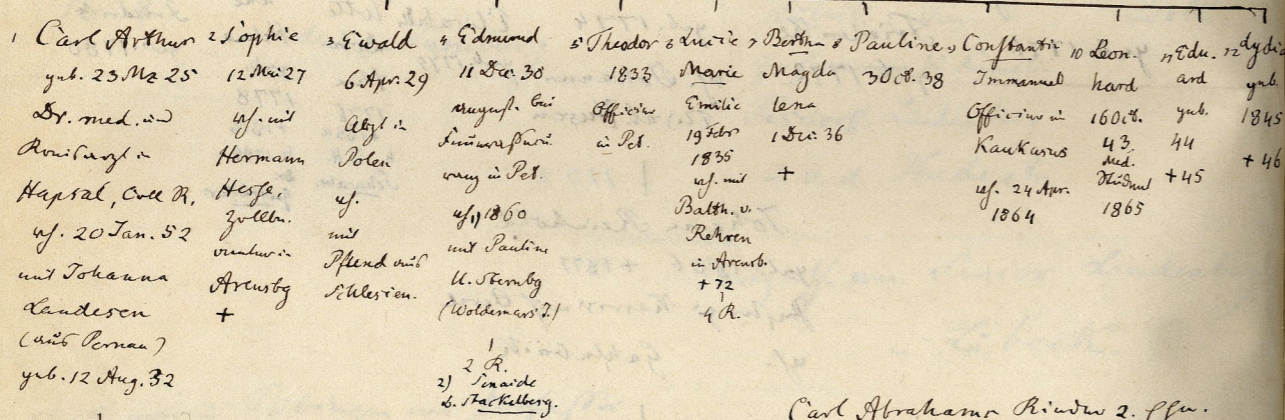 1 Carl Arthur
geb. 23 Mz 25
Dr. med. und
Kreisarzt in
Hapsal, Coll R.
vh. 20 Jan. 52
mit Johanna
Landesen
(aus Pernau)
geb. 12 Aug. 32
2 Sophie
12 Mai 27
vh. mit
Hermann
Hesse,
Zollbe.
amter in
Arensbg
+
3 Ewald
6 Apr. 29
Arzt in
Polen
vh.
mit
Pflend aus
Schlesien.
4 Edmund
11 Dec. 30
angest. bei
in Pet.
vh. 1) 1860
mit Pauline
U. Sternbg
(Woldemars T.)
2 K.
2) Sinaide
v. Stackelberg.
5 Theodor
1833
Officier
in Pet.
6 Lucie
Marie
Emilie
19 Febr
1835
vh. mit
Balth. v.
Rehren
in Arensb.
+ 72
4 K.
7 Bertha
Magda
lena
1 Dec. 36
+
8 Pauline
3 Oct. 38
9 Constantin
Immanuel
Officier in
Kaukasus
vh. 24 Apr.
1864
10 Leon-
hard
16 Oct.
43
Med.
Student
1865
11 Edu-
ard
geb.
44
+ 45
12 Lydia
geb.
1845
+ 46
Carl Abrahams Kinder 2. Ehe.